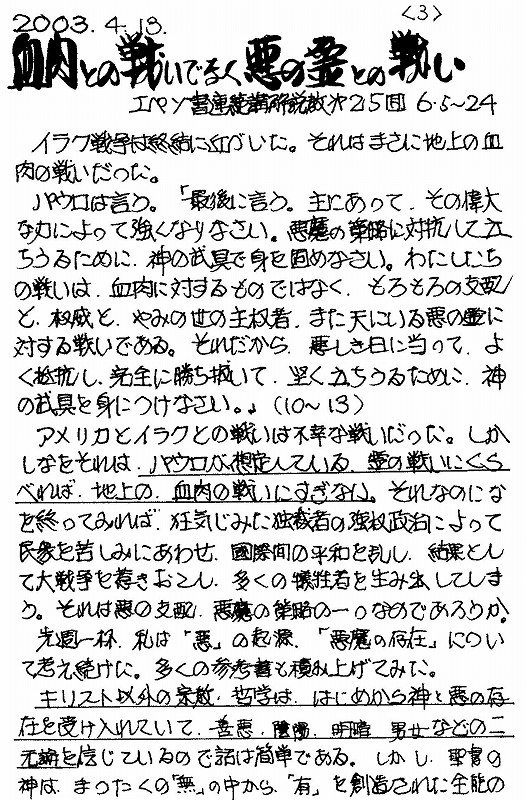 2003.4.13. <3>
血肉との戦いでなく悪の霊との戦い
エペソ書連続講解説教 第25回 6:5~24
イラク戦争は終結に近づいた。それはまさに地上の血
肉の戦いだった。
パウロは言う。「最後に言う。主にあって、その偉大
な力によって強くなりなさい。悪魔の策略に対抗して立
ちうるために、神の武具で身を固めなさい。わたしたち
の戦いは、血肉に対するものではなく、もろもろの支配
と、権威と、やみの世の主権者、また天にいる悪の霊に
対する戦いである。それだから、悪しき日に当って、よ
く抵抗し、完全に勝ち抜いて、堅く立ちうるために、神
の武具を身につけなさい。」(10~13)
アメリカとイラクとの戦いは不幸な戦いだった。しか
しなをそれは、パウロが想定している、霊の戦いにくら
べれば、地上の、血肉の戦いにすぎない。それなのにな
を終ってみれば、狂気じみた独裁者の強权政治によって
民衆を苦しみにあわせ、國際間の平和を乱し、結果とし
て大戦争を惹きおこし、多くの犠牲者を生み出してしま
う。それは悪の支配、悪魔の策略の一つなのであろうか。
先週一杯、私は「悪」の起源、「悪魔の存在」につい
て考え続けた。多くの参考書も積み上げてみた。
キリスト以外の宗教・哲学は、はじめから神と悪の存
在を受け入れていて、善悪、陰陽、明暗、男女などの二
元論を信じているので話は簡単である。しかし、聖書の
神は、まったくの「無」の中から、「有」を創造された全能の